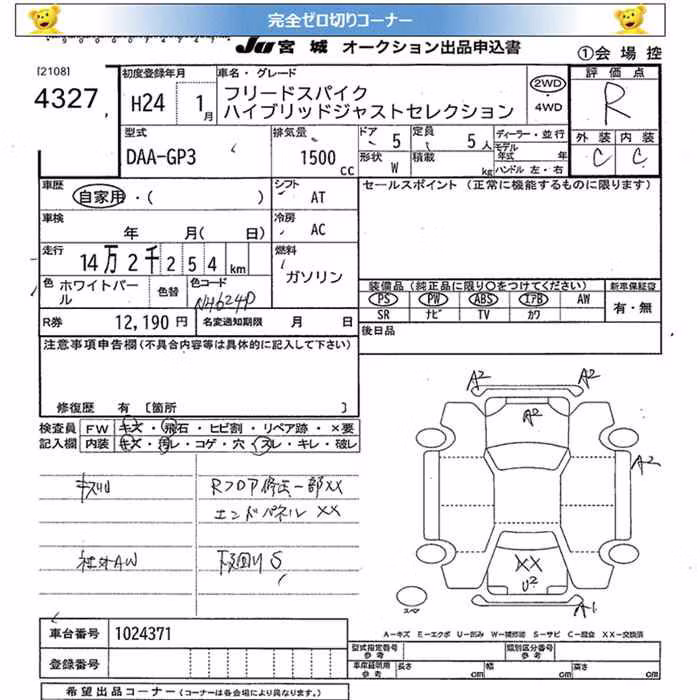 完全ゼロ切りコーナー
JU 宮城 オークション出品申込書
①会場控
[2108]
4327
初度登録年月
H24 1月
車名・グレード
フリードスパイク
ハイブリッドジャストセレクション
2WD
・4WD
評価点
R
外装 内装
C C
型式
DAA-GP3
排気量
1500 cc
ドア 5
定員 5人
形状 W
積載 kg
ディーラー・並行
モデル年式 年
ハンドル 左・右
車歴
自家用・( )
シフト
AT
セールスポイント (正常に機能するものに限ります)
車検
年 月( 日)
冷房
AC
走行
14万2千254km
燃料
ガソリン
色 ホワイトパール
色替
色コード
NH624P
装備品 (純正品に限り○をつけてください)
新車保証書
PS PW ABS エアB AW
SR ナビ TV カワ
有・無
R券 12,190円
名変通知期限 月 日
後日品
注意事項申告欄(不具合内容等は具体的に記入して下さい)
修復歴 有 〔箇所 〕
検査員記入欄
FW キズ・飛石・ヒビ割・リペア跡・×要
内装 キズ・汚レ・コゲ・穴・スレ・キレ・破レ
キズ凹
Rフロア修正一部XX
エンドパネル XX
社外AW
下廻りS
A2 A2
A2
A2
XX
U2
A1
スペア
A-キズ E-エクボ U-凹み W-補修跡 S-サビ C-腐食 XX-交換済
車台番号 1024371
登録番号
型式指定番号 参考
類別区分番号 参考
車庫証明用 参考
長さ cm 幅 cm 高さ cm
希望出品コーナー (コーナーは各会場により異なります。)